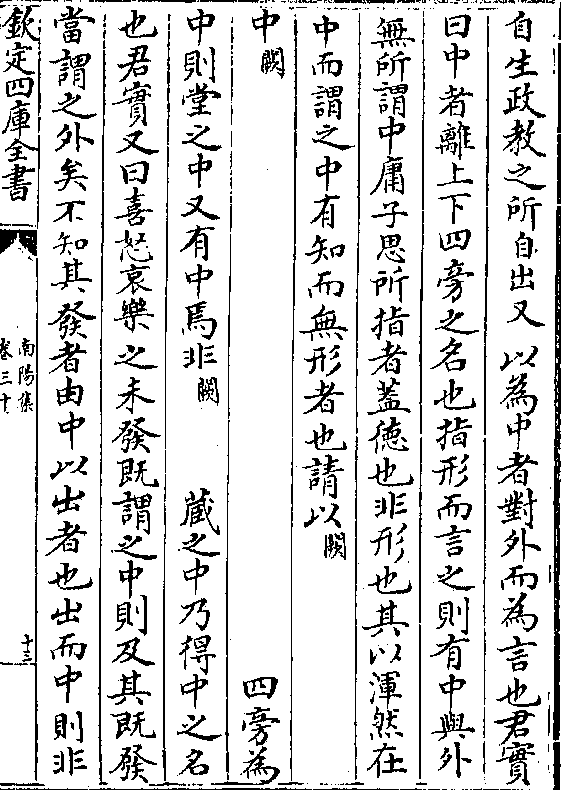 自生政教之所自出又以為中者對外而為言也君實
曰中者離上下四旁之名也指形而言之則有中與外
無所謂中庸子思所指者蓋徳也非形也其以渾然在
中而謂之中有知而無形者也請以闕
中闕　四旁為
中則堂之中又有中焉非闕　蔵之中乃得中之名
也君實又曰喜怒哀樂之未發既謂之中則及其既發
當謂之外矣不知其發者由中以出者也出而中則非
欽定四庫全書
南陽集
卷三十
十三